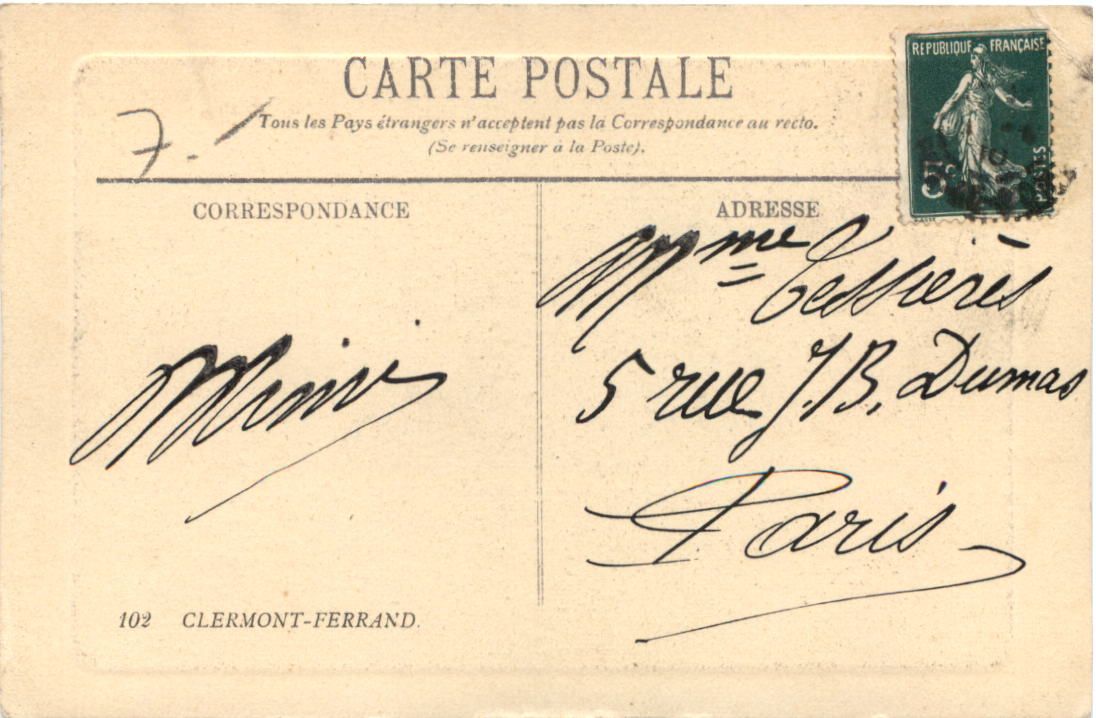 CARTE POSTALE
7.-
Tous les Pays étrangers n'acceptent pas la Correspondance au recto.
(Se renseigner à la Poste).
REPUBLIQUE FRANÇAISE
5c
POSTES
10
CORRESPONDANCE
ADRESSE
Mme Tessières
5 rue J.B. Dumas
Paris
Mimi
102 CLERMONT-FERRAND.